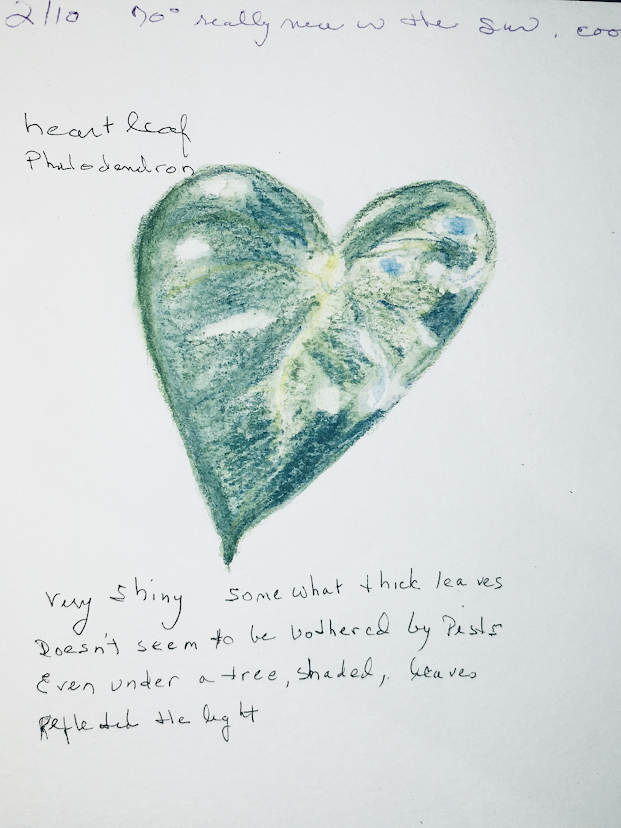 2/10 70° really nice in the sun, coo
heart leaf
Philodendron
Very shiny somewhat thick leaves
Doesn't seem to be bothered by Pests
Even under a tree, shaded, leaves
Reflected the light